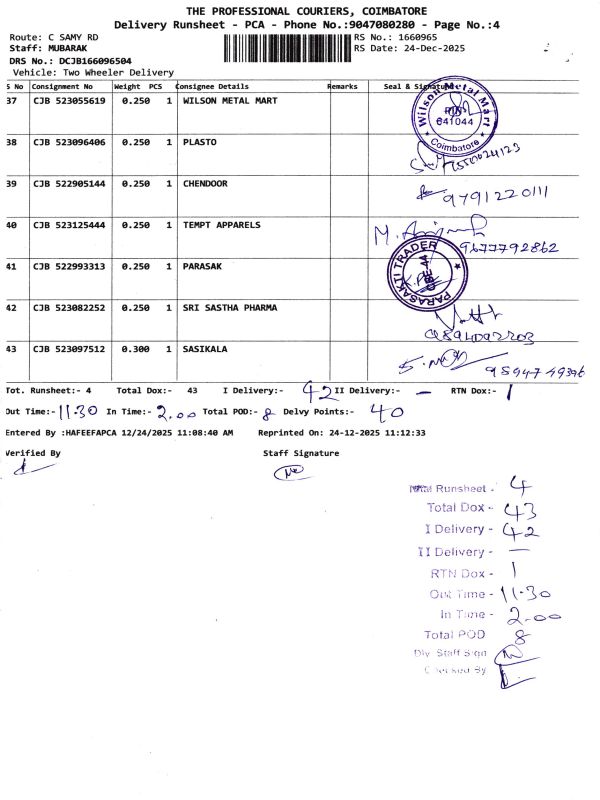 THE PROFESSIONAL COURIERS, COIMBATORE
Delivery Runsheet - PCA - Phone No.:9047080280 - Page No.:4
Route: C SAMY RD RS No.: 1660965
Staff: MUBARAK RS Date: 24-Dec-2025
DRS No.: DCJB166096504
Vehicle: Two Wheeler Delivery
S No Consignment No Weight PCS Consignee Details Remarks Seal & Signature
37 CJB 523055619 0.250 1 WILSON METAL MART Wilson Metal Mart 641044 Coimbatore
38 CJB 523096406 0.250 1 PLASTO
39 CJB 522905144 0.250 1 CHENDOOR 9791220111
40 CJB 523125444 0.250 1 TEMPT APPARELS 9677792862
41 CJB 522993313 0.250 1 PARASAK PARASAKTI TRADER CBE-44
42 CJB 523082252 0.250 1 SRI SASTHA PHARMA
43 CJB 523097512 0.300 1 SASIKALA
Tot. Runsheet:- 4 Total Dox:- 43 I Delivery:- 42 II Delivery:- — RTN Dox:- 1
Out Time:- 11.30 In Time:- 2.00 Total POD:- 8 Delvy Points:- 40
Entered By :HAFEEFAPCA 12/24/2025 11:08:40 AM Reprinted On: 24-12-2025 11:12:33
Verified By Staff Signature
Total Runsheet - 4
Total Dox - 43
I Delivery - 42
II Delivery - —
RTN Dox - 1
Out Time - 11.30
In Time - 2.00
Total POD 8
Dly. Staff Sign
Checked By